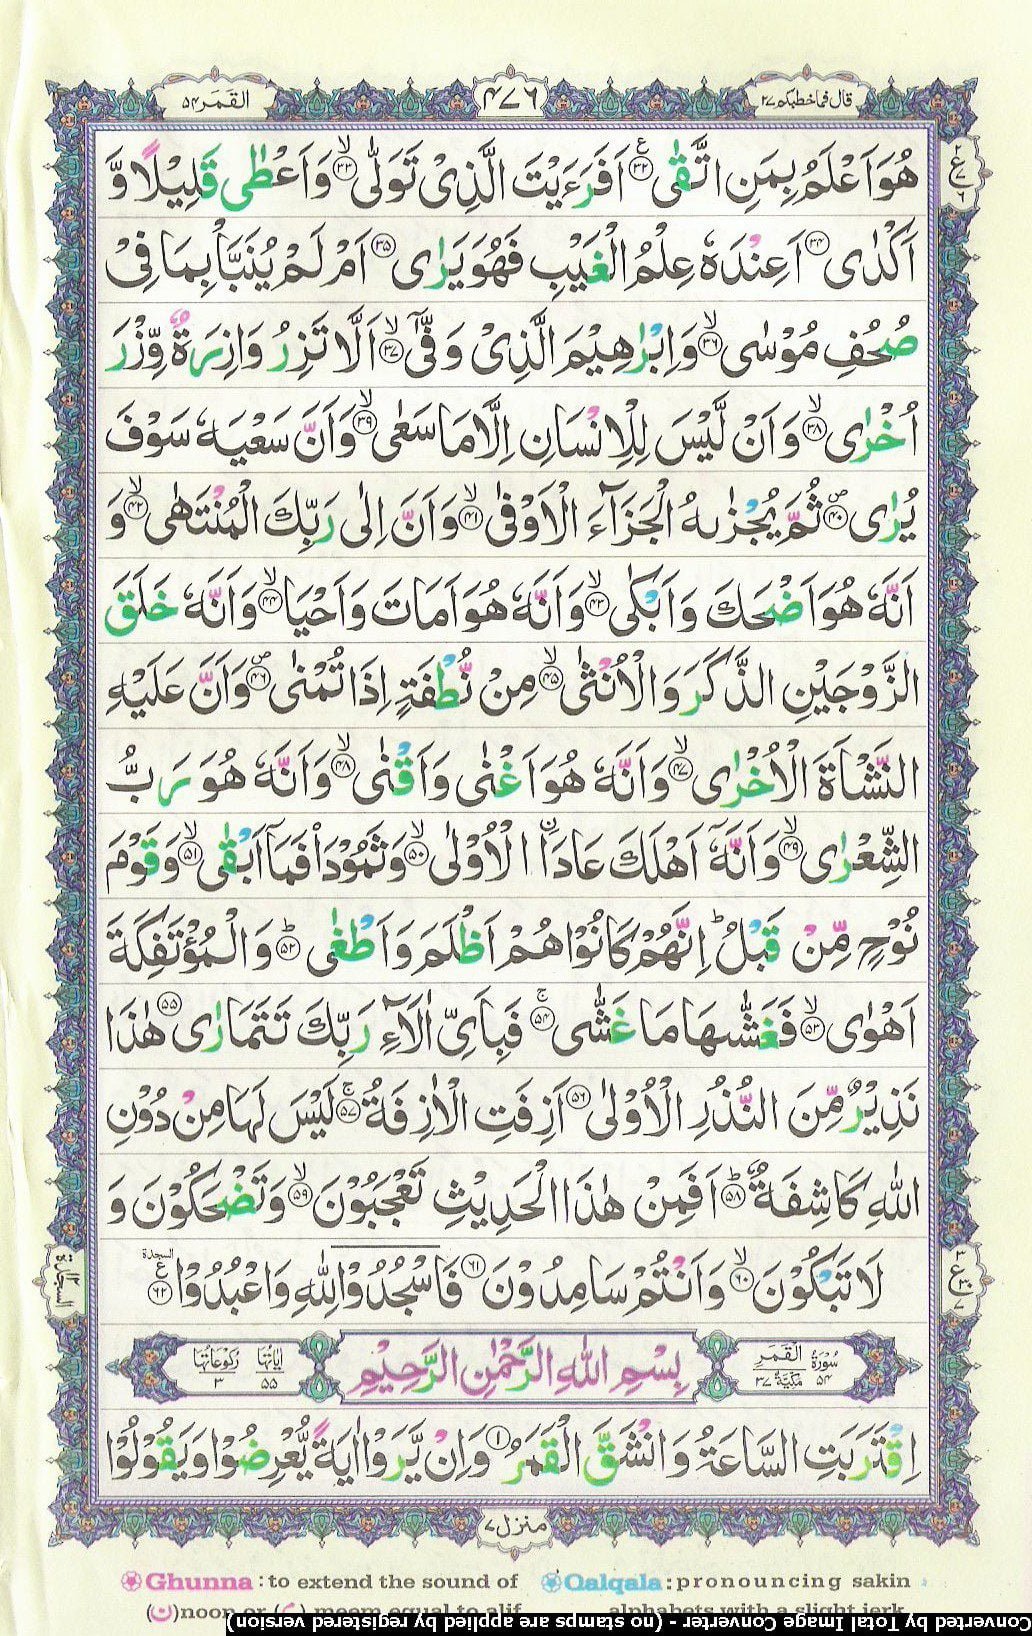 القمر ۵۴
۴۷۶
قال فما خطبكم ۲۷
هُوَ اَعْلَمُ بِمَنِ اتَّقٰى ﴿۳۲﴾ اَفَرَءَيْتَ الَّذِىْ تَوَلّٰى ﴿۳۳﴾ وَاَعْطٰى قَلِيْلًا وَّ
اَكْدٰى ﴿۳۴﴾ اَعِنْدَهٗ عِلْمُ الْغَيْبِ فَهُوَ يَرٰى ﴿۳۵﴾ اَمْ لَمْ يُنَبَّاْ بِمَا فِىْ
صُحُفِ مُوْسٰى ﴿۳۶﴾ وَاِبْرٰهِيْمَ الَّذِىْ وَفّٰٓى ﴿۳۷﴾ اَلَّا تَزِرُ وَازِرَةٌ وِّزْرَ
اُخْرٰى ﴿۳۸﴾ وَاَنْ لَّيْسَ لِلْاِنْسَانِ اِلَّا مَا سَعٰى ﴿۳۹﴾ وَاَنَّ سَعْيَهٗ سَوْفَ
يُرٰى ﴿۴۰﴾ ثُمَّ يُجْزٰىهُ الْجَزَآءَ الْاَوْفٰى ﴿۴۱﴾ وَاَنَّ اِلٰى رَبِّكَ الْمُنْتَهٰى ﴿۴۲﴾ وَ
اَنَّهٗ هُوَ اَضْحَكَ وَاَبْكٰى ﴿۴۳﴾ وَاَنَّهٗ هُوَ اَمَاتَ وَاَحْيَا ﴿۴۴﴾ وَاَنَّهٗ خَلَقَ
الزَّوْجَيْنِ الذَّكَرَ وَالْاُنْثٰى ﴿۴۵﴾ مِنْ نُّطْفَةٍ اِذَا تُمْنٰى ﴿۴۶﴾ وَاَنَّ عَلَيْهِ
النَّشْاَةَ الْاُخْرٰى ﴿۴۷﴾ وَاَنَّهٗ هُوَ اَغْنٰى وَاَقْنٰى ﴿۴۸﴾ وَاَنَّهٗ هُوَ رَبُّ
الشِّعْرٰى ﴿۴۹﴾ وَاَنَّهٗٓ اَهْلَكَ عَادَا۟ اۨلْاُوْلٰى ﴿۵۰﴾ وَثَمُوْدَا۟ فَمَآ اَبْقٰى ﴿۵۱﴾ وَقَوْمَ
نُوْحٍ مِّنْ قَبْلُ ؕ اِنَّهُمْ كَانُوْا هُمْ اَظْلَمَ وَاَطْغٰى ﴿۵۲﴾ وَالْمُؤْتَفِكَةَ
اَهْوٰى ﴿۵۳﴾ فَغَشّٰىهَا مَا غَشّٰى ﴿۵۴﴾ فَبِاَىِّ اٰلَآءِ رَبِّكَ تَتَمَارٰى ﴿۵۵﴾ هٰذَا
نَذِيْرٌ مِّنَ النُّذُرِ الْاُوْلٰى ﴿۵۶﴾ اَزِفَتِ الْاٰزِفَةُ ﴿۵۷﴾ لَيْسَ لَهَا مِنْ دُوْنِ
اللّٰهِ كَاشِفَةٌ ﴿۵۸﴾ اَفَمِنْ هٰذَا الْحَدِيْثِ تَعْجَبُوْنَ ﴿۵۹﴾ وَتَضْحَكُوْنَ وَ
لَا تَبْكُوْنَ ﴿۶۰﴾ وَاَنْتُمْ سَامِدُوْنَ ﴿۶۱﴾ فَاسْجُدُوْا لِلّٰهِ وَاعْبُدُوْا ﴿۶۲﴾ السجدة
السجدة
سُوْرَةُ الْقَمَرِ ۵۴ مَكِّيَّةٌ ۳۷
بِسْمِ اللّٰهِ الرَّحْمٰنِ الرَّحِيْمِ
اٰيَاتُهَا ۵۵ رُكُوْعَاتُهَا ۳
اِقْتَرَبَتِ السَّاعَةُ وَانْشَقَّ الْقَمَرُ ﴿۱﴾ وَاِنْ يَّرَوْا اٰيَةً يُّعْرِضُوْا وَيَقُوْلُوْا
منزل ۷
Ghunna : to extend the sound of
(ن)noon or (م) meem equal to alif
Qalqala : pronouncing sakin
alphabets with a slight jerk
Converted by Total Image Converter - (no stamps are applied by registered version)